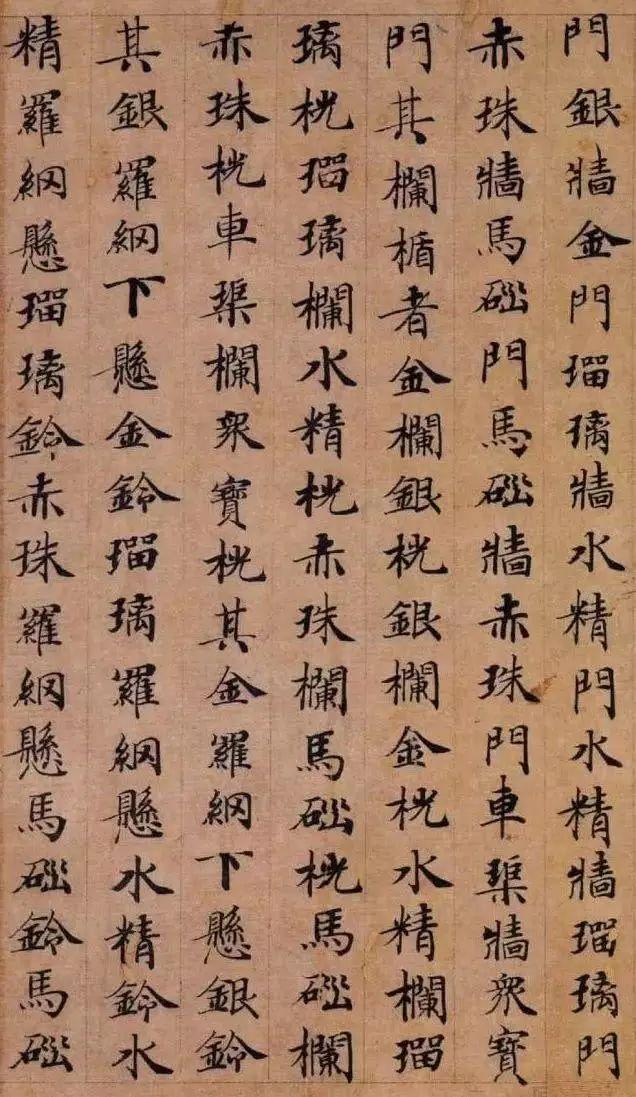 門銀牆金門瑠璃牆水精門水精牆瑠璃門
赤珠牆馬碯門馬碯牆赤珠門車渠牆眾寶
門其欄楯者金欄銀桄銀欄金桄水精欄瑠
璃桄瑠璃欄水精桄赤珠欄馬碯桄馬碯欄
赤珠桄車渠欄眾寶桄其金羅網下懸銀鈴
其銀羅網下懸金鈴瑠璃羅網懸水精鈴水
精羅網懸瑠璃鈴赤珠羅網懸馬碯鈴馬碯